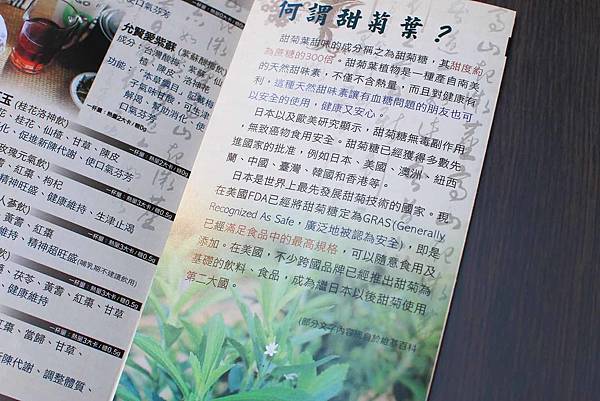 使口氣芬芳
允賢愛紫蘇(紫蘇酸梅飲)
成分:台灣酸梅、紫蘇、仙
楂、陳皮
一杯量:熱量2大卡/糖0g
玉(桂花洛神飲)
、桂花、仙楂、甘草、陳皮
化、促進新陳代謝、使口氣芬芳
一杯量:熱量3大卡/糖0.5g
玫瑰元氣飲)
、紅棗、枸杞
精神旺盛、健康維持、生津止渴
一杯量:熱量3大卡/糖0.5g
人蔘飲)
、黃耆、紅棗、甘草
持、精神超旺盛(哺乳期不建議飲用)
一杯量:熱量3大卡/糖0.5g
、茯苓、黃耆、紅棗、甘草
健康維持
一杯量:熱量3大卡/糖0.5g
紅棗、當歸、甘草、
新陳代謝、調整體質、
何謂甜菊葉?
甜菊葉甜味的成分稱之為甜菊糖,其甜度約
為蔗糖的300倍。甜菊葉植物是一種產自南美
的天然甜味素,不僅不含熱量,而且對健康有
利,這種天然甜味素讓有血糖問題的朋友也可
以安全的使用,健康又安心。
日本以及歐美研究顯示,甜菊糖無毒副作用,
無致癌物食用安全。甜菊糖已經獲得多數先
進國家的批准,例如日本、美國、澳洲、紐西
蘭、中國、臺灣、韓國和香港等。
日本是世界上最先發展甜菊糖技術的國家。現
在美國FDA已經將甜菊糖定為GRAS(Generally
Recognized As Safe,廣泛地被認為安全),即是
已經滿足食品中的最高規格,可以隨意食用及
添加。在美國,不少跨國品牌已經推出甜菊為
基礎的飲料、食品,成為繼日本以後甜菊使用
第二大國。
(部分文字內容摘自於維基百科